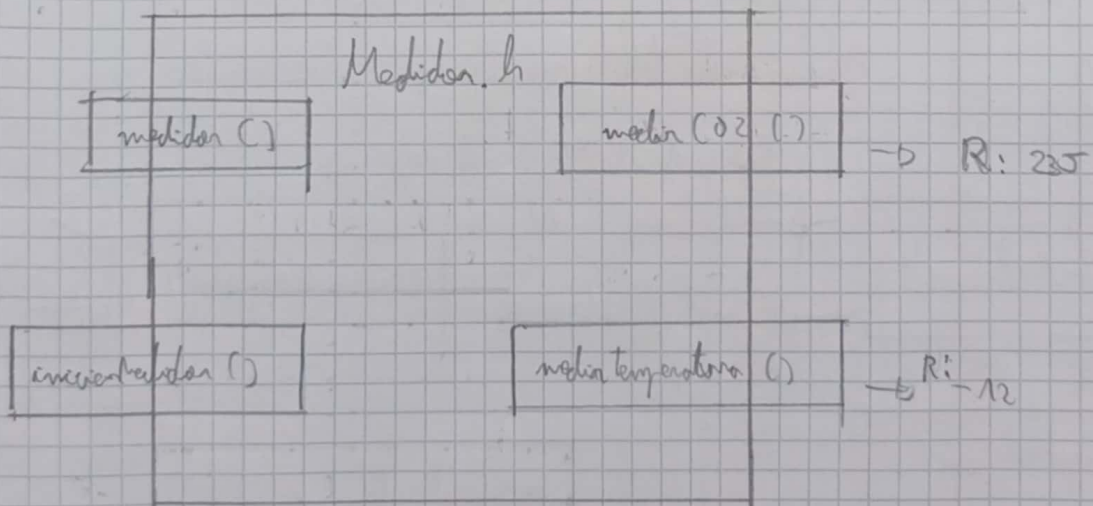 Medidor.h
medidor ()
medir CO2 ()
→ R: 235
iniciarMedidor ()
medirtemperatura ()
→ R: -12